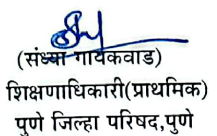 (संध्या गायकवाड)
शिक्षणाधिकारी(प्राथमिक)
पुणे जिल्हा परिषद,पुणे